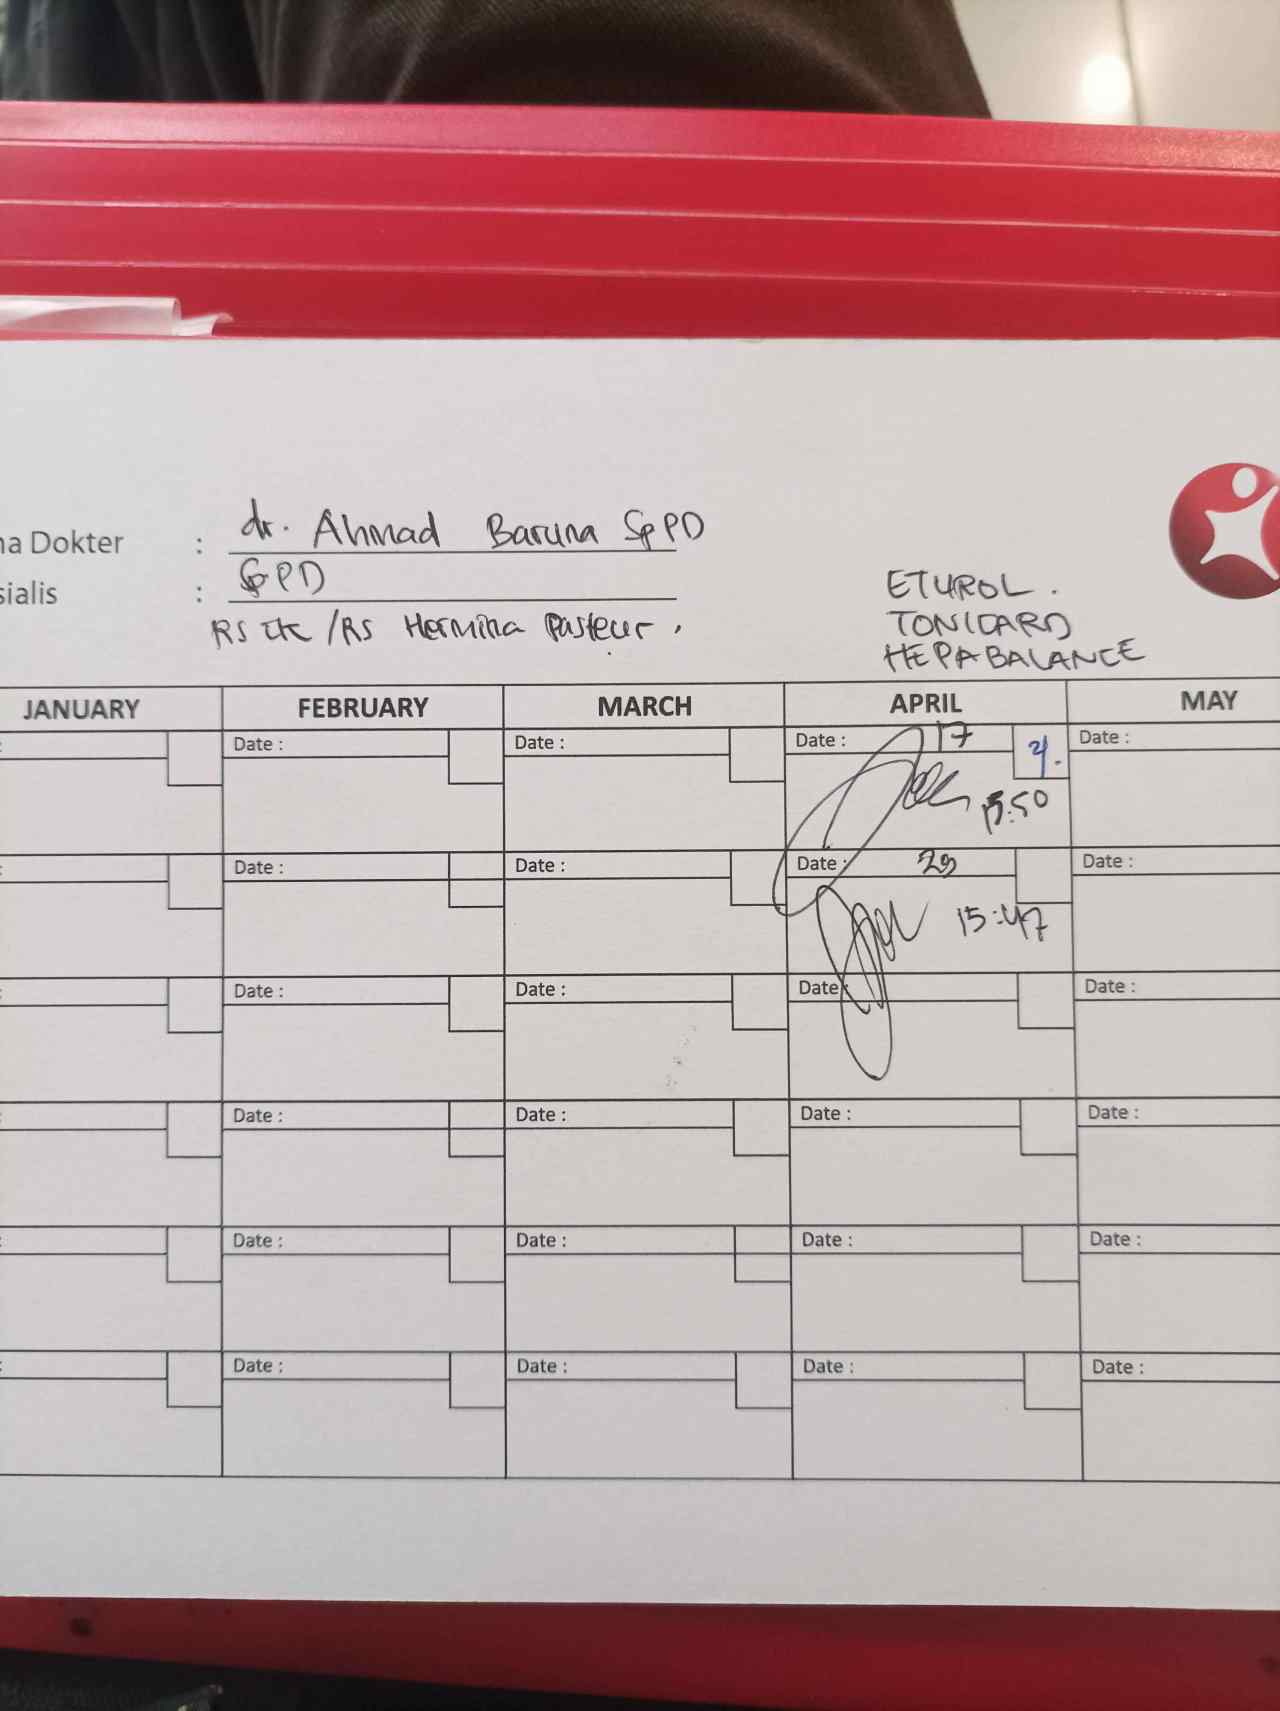 na Dokter : dr. Ahmad Baruna SpPD
sialis : SpPD
RS IK /RS Hermina Pasteur.
ETUROL.
TONICARD
HEPABALANCE
JANUARY FEBRUARY MARCH APRIL MAY
: Date : Date : Date : 17 4. Date :
15:50
: Date : Date : Date : 29 Date :
15:47
: Date : Date : Date : Date :
: Date : Date : Date : Date :
: Date : Date : Date : Date :
: Date : Date : Date : Date :